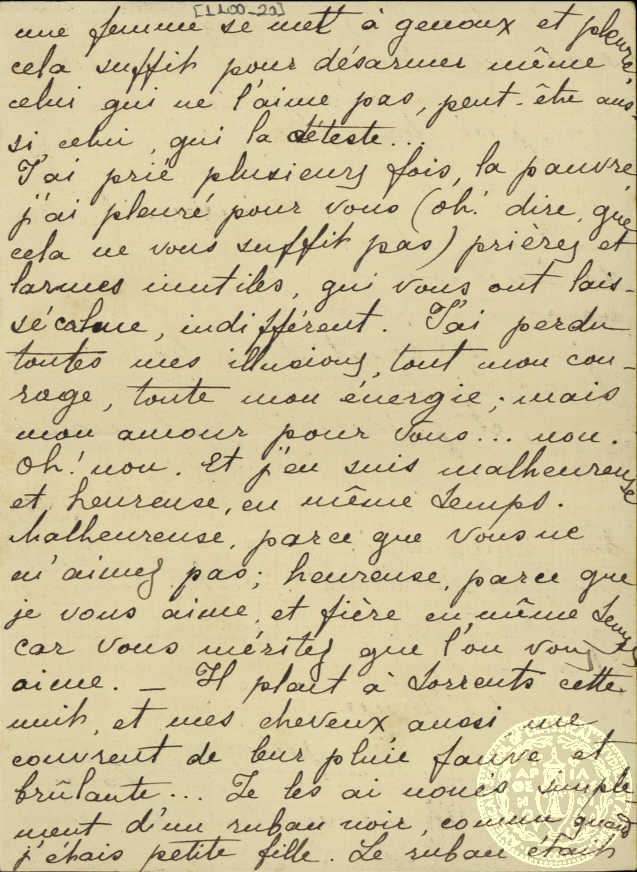 [1100-22]
une femme se met à genoux et pleure,
cela suffit pour désarmer même
celui qui ne l'aime pas, peut-être aus-
si celui, qui la déteste...
J'ai prié plusieurs fois, la pauvre
j'ai pleuré pour vous (oh! dire, que
cela ne vous suffit pas) prières et
larmes inutiles, qui vous ont lais-
sé calme, indifférent. J'ai perdu
toutes mes illusions, tout mon cou-
rage, toute mon énergie; mais
mon amour pour vous... non.
Oh! non. Et j'en suis malheureuse
et heureuse, en même temps.
Malheureuse, parce que vous ne
m'aimez pas; heureuse, parce que
je vous aime, et fière en même temps
car vous méritez que l'on vous
aime. — Il pleut à torrents cette
nuit, et mes cheveux, aussi, me
couvrent de leur pluie fauve et
brûlante... Je les ai noués simple-
ment d'un ruban noir, comme quand
j'étais petite fille. Le ruban était